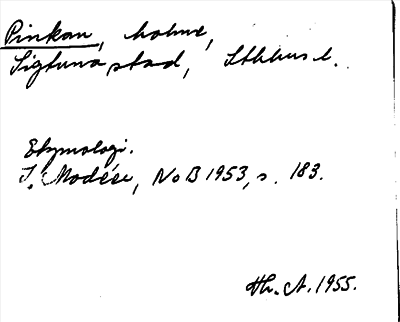 Pinkan, holme,
Sigtuna stad, Sthlms l.
Etymologi.
I. Modéer, NoB 1953, s. 183.
Hr. A. 1955.